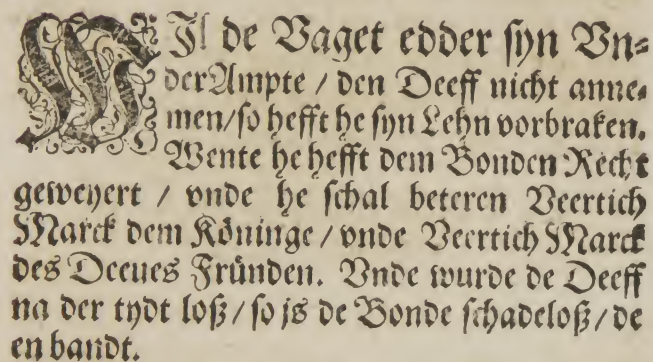 WJl de Vaget edder syn Vn⸗
derAmpte / den Deeff nicht anne⸗
men/so hefft he syn Lehn vorbraken.
Wente he hefft dem Bonden Recht
geweyert / vnde he schal beteren Veertich
Marck dem Köninge / vnde Veertich Marck
des Deeues Fründen. Vnde wurde de Deeff
na der tydt loß / so is de Bonde schadeloß / de
en bandt.